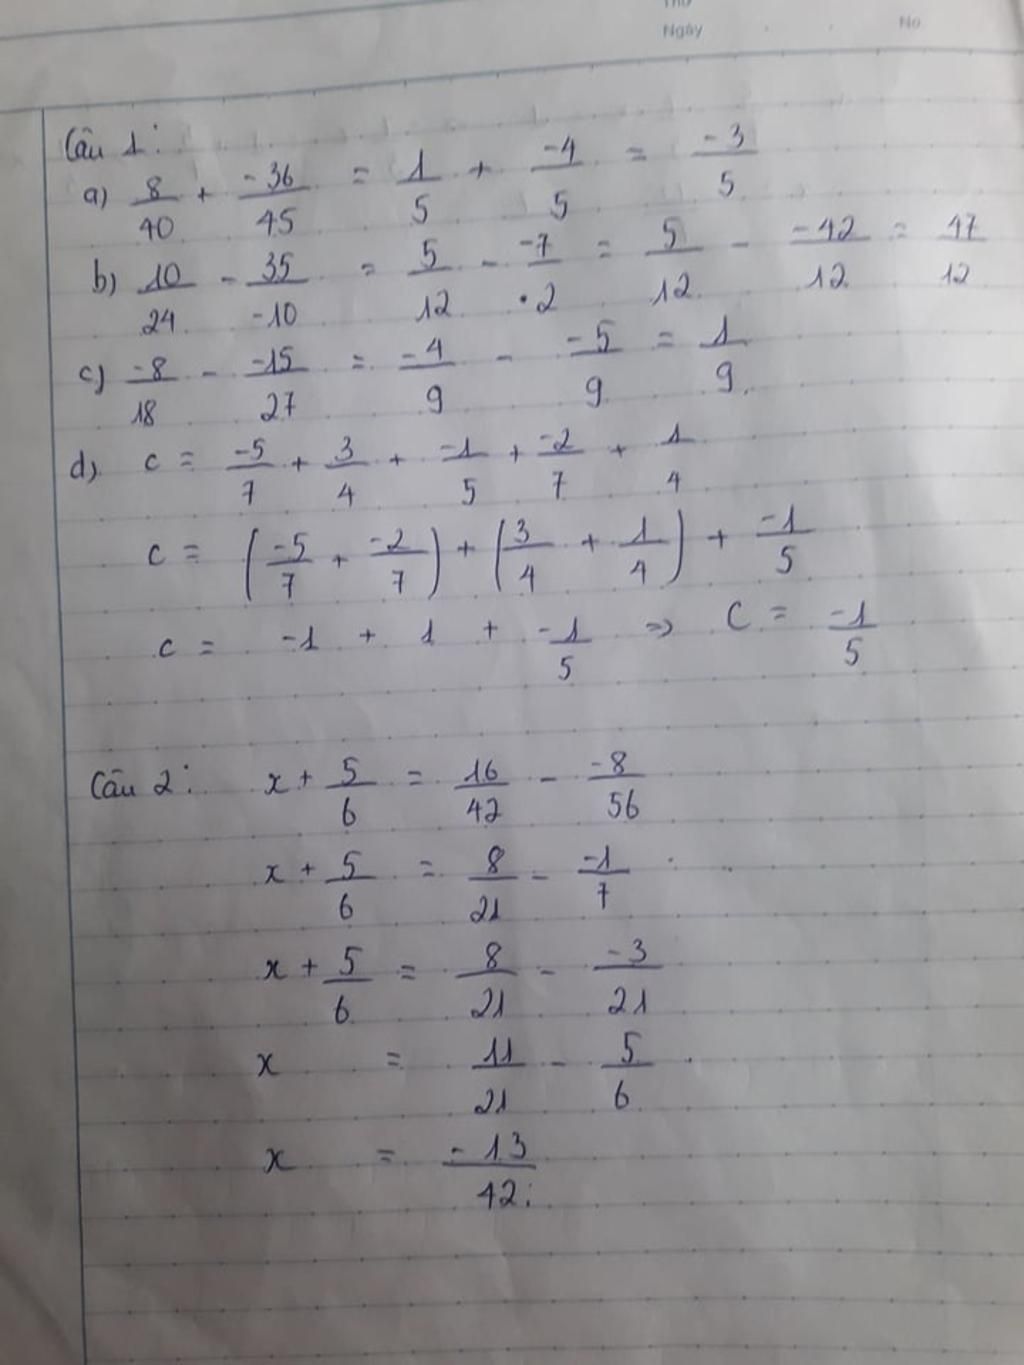 Ngày No
Câu 1:
a) 8/40 + -36/45 = 1/5 + -4/5 = -3/5
b) 10/24 - 35/-10 = 5/12 - -7/2 = 5/12 - -42/12 = 47/12
c) -8/18 - -15/27 = -4/9 - -5/9 = 1/9
d) c = -5/7 + 3/4 + -1/5 + -2/7 + 1/4
c = (-5/7 + -2/7) + (3/4 + 1/4) + -1/5
c = -1 + 1 + -1/5 => C = -1/5
Câu 2: x + 5/6 = 16/42 - -8/56
x + 5/6 = 8/21 - -1/7
x + 5/6 = 8/21 - -3/21
x = 11/21 - 5/6
x = -13/42